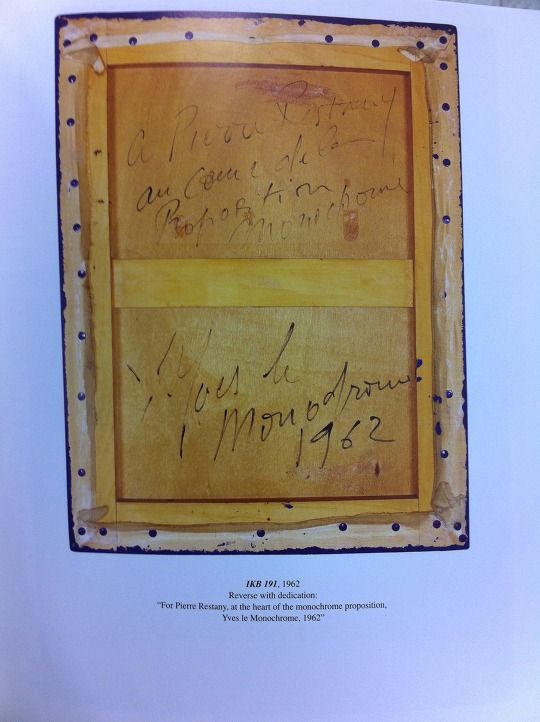 A Pierre Restany
au cœur de la
Proposition
Monochrome
Yves le
Monochrome
1962
IKB 191, 1962
Reverse with dedication:
"For Pierre Restany, at the heart of the monochrome proposition,
Yves le Monochrome, 1962"